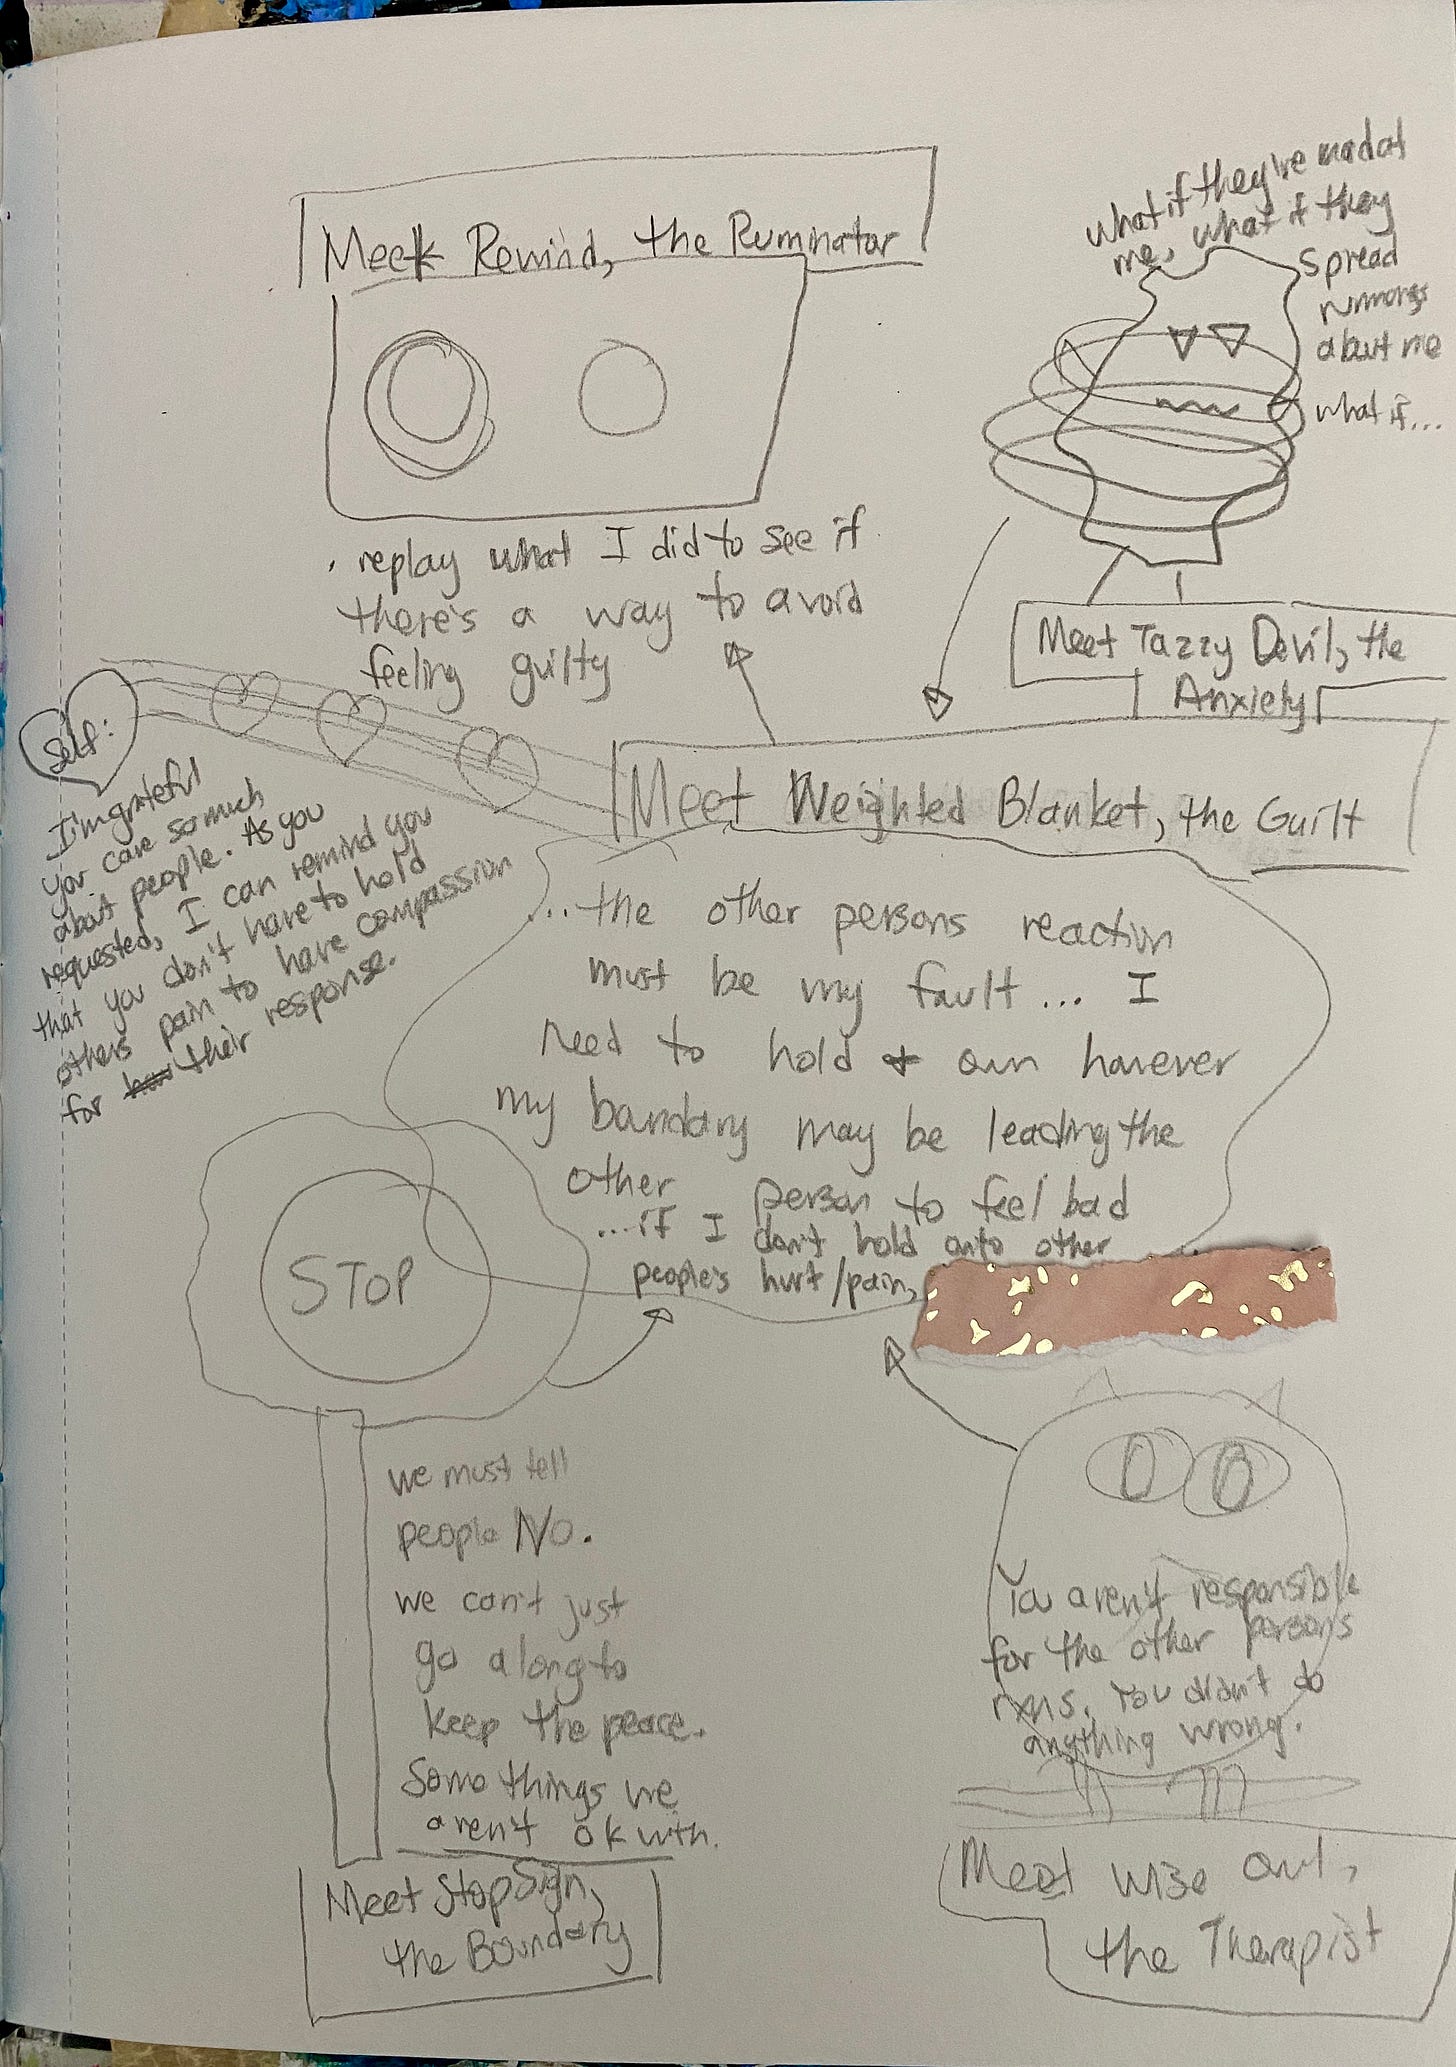 Meet Rewind, the Ruminator
. replay what I did to see if
there's a way to avoid
feeling guilty
what if they're mad at
me, what if they
spread
rumors
about me
what if...
Meet Tazzy Devil, the
Anxiety
Self:
I'm grateful
you care so much
about people. As you
requested, I can remind you
that you don't have to hold
others pain to have compassion
for their response.
Meet Weighted Blanket, the Guilt
...the other persons reaction
must be my fault... I
need to hold & own however
my boundary may be leading the
other person to feel bad
...if I don't hold onto other
people's hurt/pain,
STOP
we must tell
people No.
we can't just
go along to
keep the peace.
Some things we
aren't ok with.
Meet Stop Sign,
the Boundary
You aren't responsible
for the other persons
rxns. You didn't do
anything wrong.
Meet Wise Owl,
the Therapist